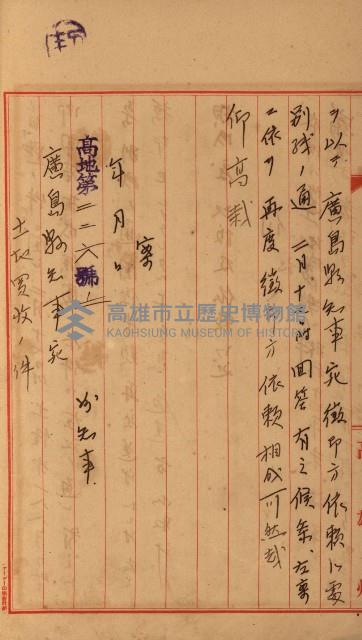 ヲ以テ廣島縣知事宛徵印方依賴
別紙ノ通二月十二日附回答有之候条左案
ニ依リ再度徵印方依賴相成可然哉
仰高裁
案
年月日
高地第二二六號ノ
州知事
廣島縣知事宛
土地買收ノ件
高雄市立歷史博物館
KAOHSIUNG MUSEUM OF HISTORY
高雄州